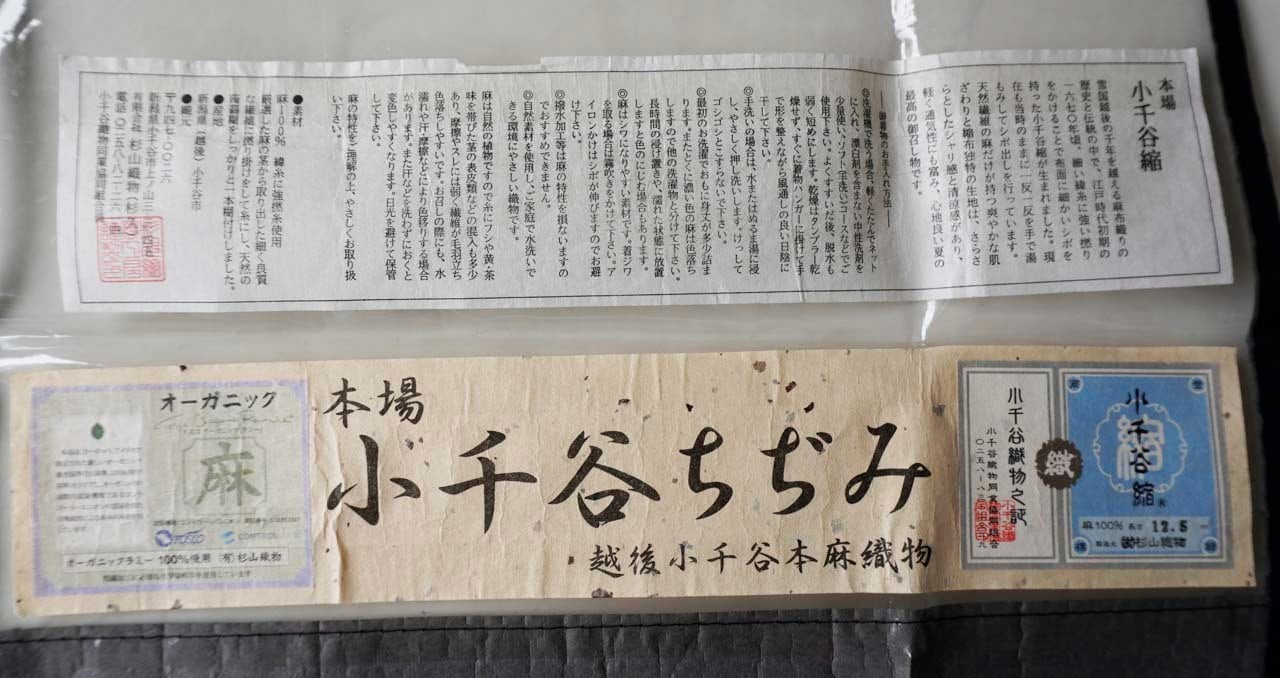 本場
小千谷縮
雪国越後の千年を越える麻布織りの
歴史と伝統の中で、江戸時代初期の
一六七〇年頃、細い緯糸に強い撚り
をかけることで布面に細かいシボを
持った小千谷縮が生まれました。現
在も当時のままに一反一反を手で湯
もみしてシボ出しを行っています。
天然繊維の麻だけが持つ爽やかな肌
ざわりと縮布独特の生地は、さらさ
らとしたシャリ感と清涼感があり、
軽く通気性にも富み、心地良い夏の
最高の御召し物です。
――御着物のお手入れ方法――
◎洗濯機で洗う場合、軽くたたんでネット
に入れ、漂白剤を含まない中性洗剤を
少量使い、ソフト(手洗い)コースなどでご
使用下さい。よくすすいだ後、脱水も
弱く短めにします。乾燥はタンブラー乾
燥せず、すぐに着物ハンガーに掛けて手
で形を整えながら風通しの良い日陰に
干して下さい。
◎手洗いの場合は、水またはぬるま湯に浸
し、やさしく押し洗いします。けっして
ゴシゴシとこすらないで下さい。
◎最初のお洗濯でおもに身丈が多少詰ま
ります。またとくに濃い色の麻は色落ち
しますので他の洗濯物と分けて下さい。
長時間の浸け置きや、濡れた状態に放置
しますと色のにじむ場合もあります。
◎麻はシワになりやすい素材です。着ジワ
を取る場合は霧吹きをかけて下さい。ア
イロンかけはシボが伸びますのでお避
け下さい。
◎撥水加工等は麻の特性を損ないますの
でおすすめできません。
◎自然素材を使用し、ご家庭で水洗いで
きる環境にやさしい織物です。
麻は自然の植物ですので糸にフシや黄・茶
味を帯びた茎の表皮類などの混入も多少
あり、摩擦やスレには弱く繊維が毛羽立ち
色落ちしやすいです。お召しの際にも、水
濡れや汗・摩擦などにより色移りする場合
があります。また汗などを洗わずにおくと
変色しやすくなります。日光を避けて保管
して下さい。
麻の特性をご理解の上、やさしくお取り扱
い下さい。
●素材
麻100% 緯糸に強撚糸使用
厳選した麻の茎から取り出した細く良質
な繊維に撚り掛けをして糸にし、天然の
蒟蒻糊をしっかりと一本糊付けしました。
●産地
新潟県(越後)小千谷市
●織元
〒九四七-〇〇二六
新潟県小千谷市上ノ山三
有限会社 杉山織物
小千谷織物同業協同組合
オーガニック
麻
CONTROL
オーガニックラミー100%使用 (有)杉山織物
本場
小千谷ちぢみ
越後小千谷本麻織物
小千谷織物之証
小千谷織物同業協同組合
織
縮
小千谷縮
麻100% 長さ 12.5 m
製造元 ㈲杉山織物